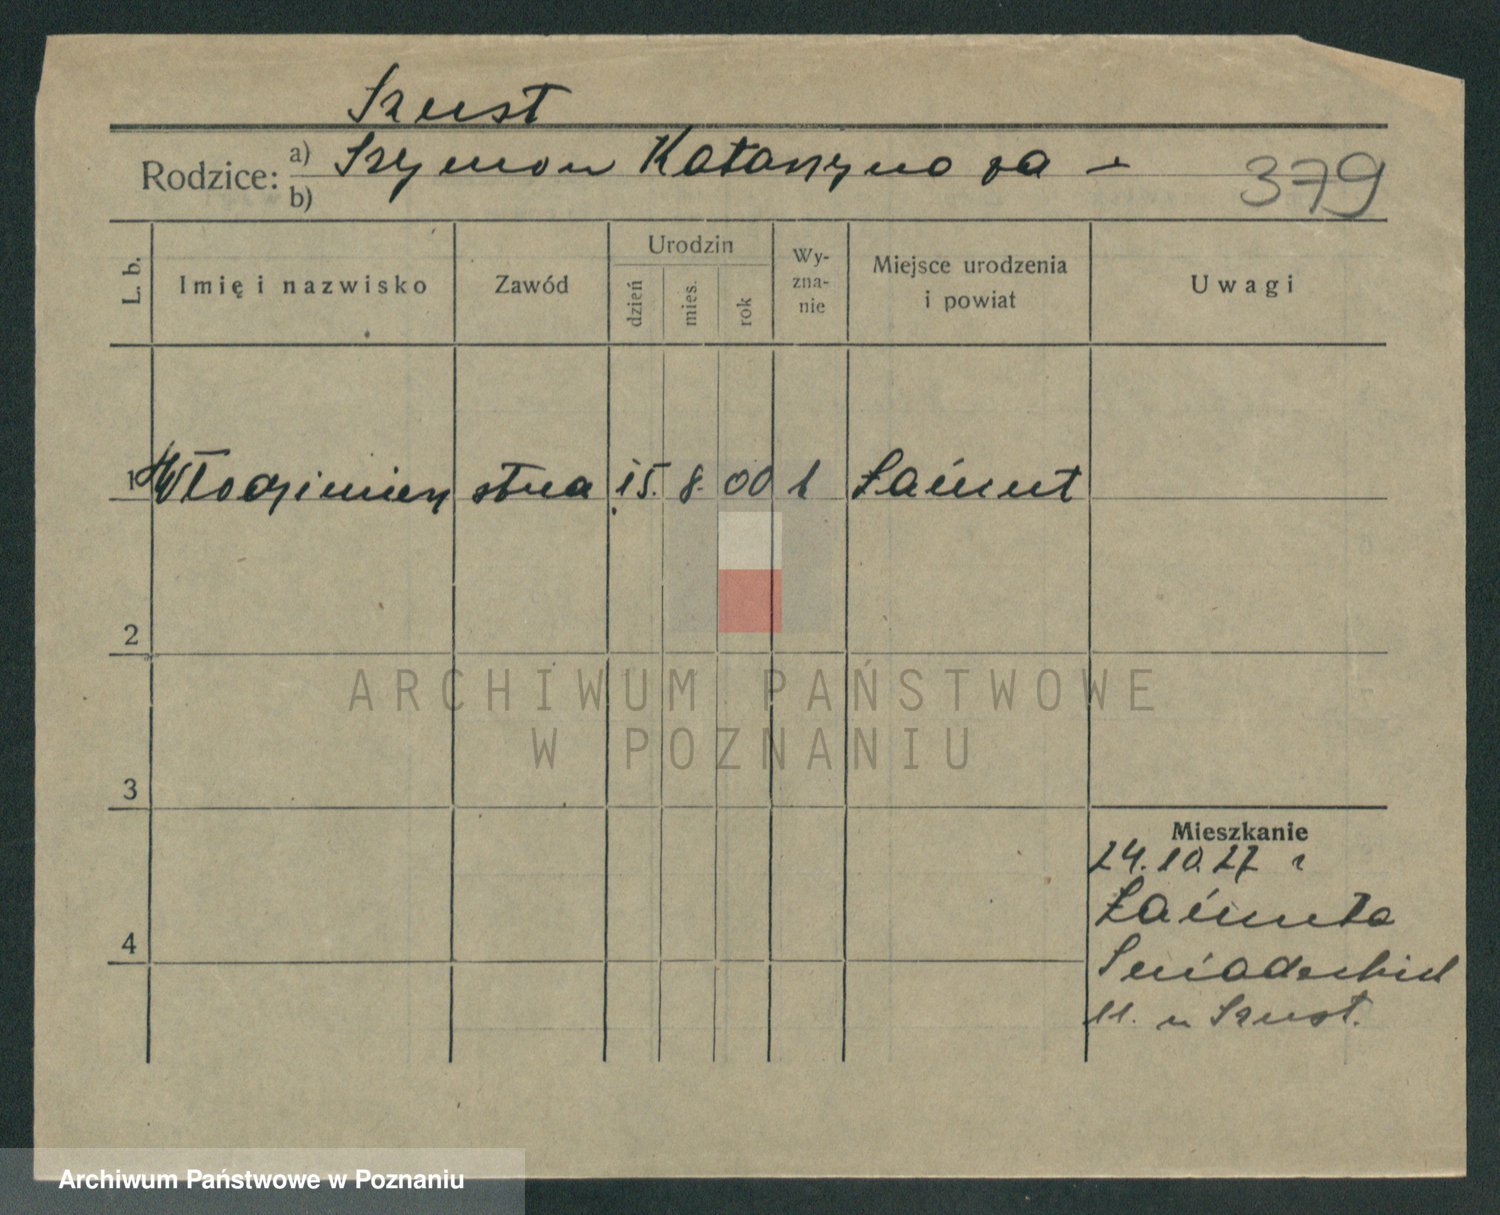 Szust
Rodzice: a) Szymon Katarzyna za -
b)
379
L. b.
Imię i nazwisko
Zawód
Urodzin
dzień
mies.
rok
Wy-
zna-
nie
Miejsce urodzenia
i powiat
Uwagi
1 Włodzimierz 15. 8. 00 Łańcut
2
3
4
Mieszkanie
24.10.27 r
Łańcuta
Śniadeckich
11. u Szust.
ARCHIWUM PAŃSTWOWE
W POZNANIU
Archiwum Państwowe w Poznaniu